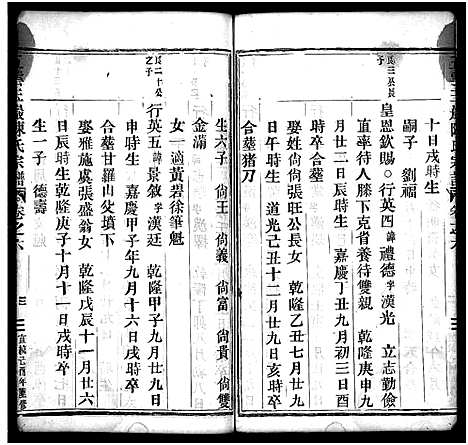 十日戌時生
嗣子 劉福
皇恩欽賜 行英四 諱禮德 字漢光 立志勤儉
直率待人 膝下克省 養待雙親 乾隆庚申九
月廿二日辰時生 嘉慶丁丑九月初三日酉
時卒 合葬猪刀
娶尚坎張旺公長女 乾隆乙丑七月廿九
日午時生 道光己丑十二月廿九日亥時卒
生六子 尙玉 尙義 尙富 尙貴 尙雙
金滿
女一 適黃碧徐筆魁
行英五 諱景敘 字漢廷 乾隆甲子九月廿九日
申時生 嘉慶甲子年九月十六日戌時卒
合葬甘羅山父墳下
娶雅施虞張盛翁女 乾隆戊辰十一月廿六
日辰時生 乾隆庚子十月十一日戌時卒
生一子 德壽
陳氏宗譜 卷之六
三